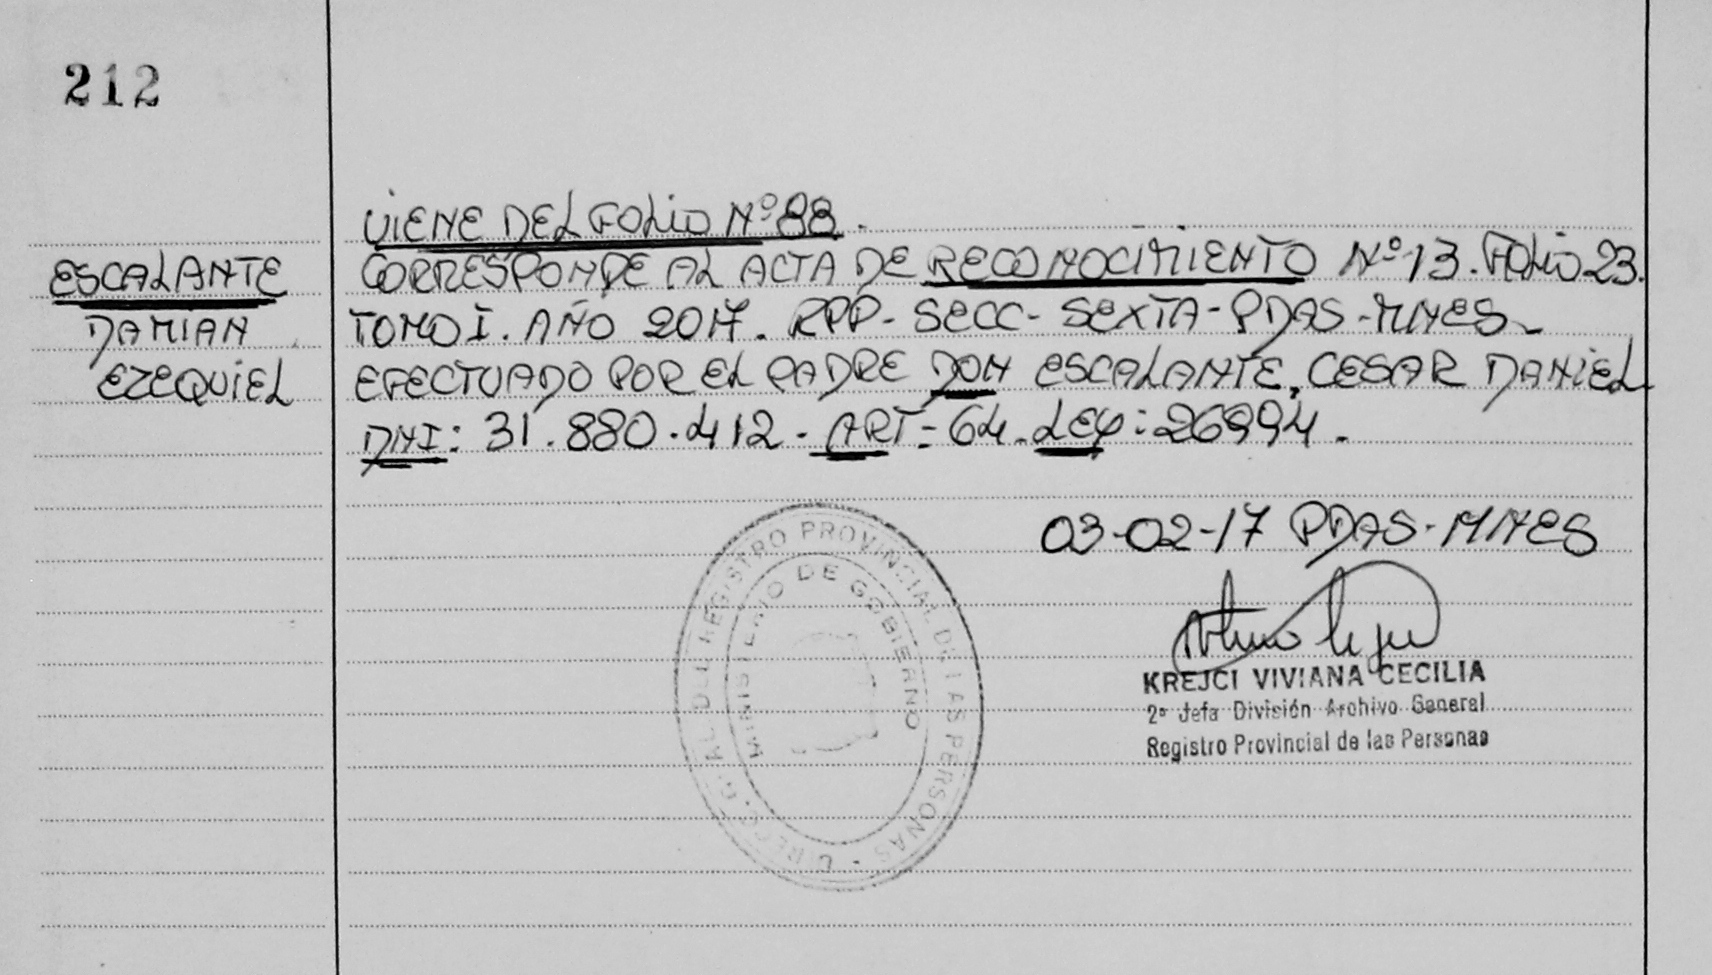 212
VIENE DEL FOLIO Nº 88.
ESCALANTE
DAMIAN
EZEQUIEL
CORRESPONDE AL ACTA DE RECONOCIMIENTO Nº 13. FOLIO 23.
TOMO I. AÑO 2017. RPP- SECC- SEXTA- PDAS-MNES-
EFECTUADO POR EL PADRE DON ESCALANTE, CESAR DANIEL
DNI: 31.880.412. ART= 64. LEY: 26994.
03-02-17 PDAS-MNES
KREJCI VIVIANA CECILIA
2º Jefa División Archivo General
Registro Provincial de las Personas
DIRECC. G'AL DEL REGISTRO PROVINCIAL DE LAS PERSONAS -
MINISTERIO DE GOBIERNO